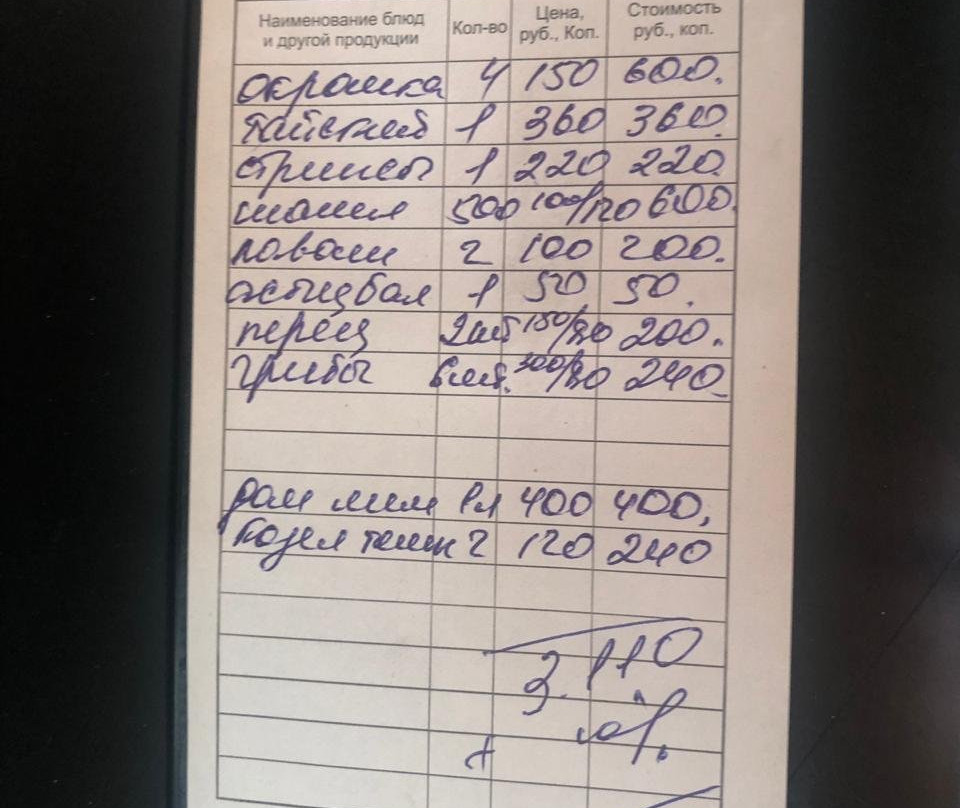 Наименование блюд и другой продукции Кол-во Цена, руб., Коп. Стоимость руб., коп.
окрошка 4 150 600.
тайский 1 360 360.
стрипсы 1 220 220.
шашл 500 100/120 600.
лаваш 2 100 200.
1 50 50.
перец 2шт 150/80 200.
грибы 6шт. 300/80 240.
лим 1л 400 400,
козел темн 2 120 240
3.110